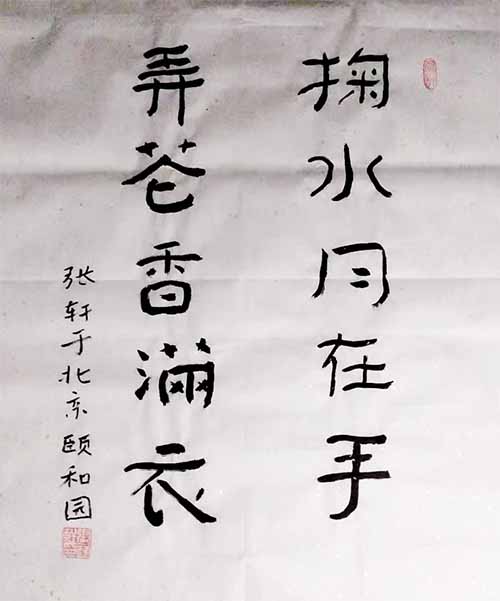 掬水月在手
弄花香满衣
张轩于北京颐和园